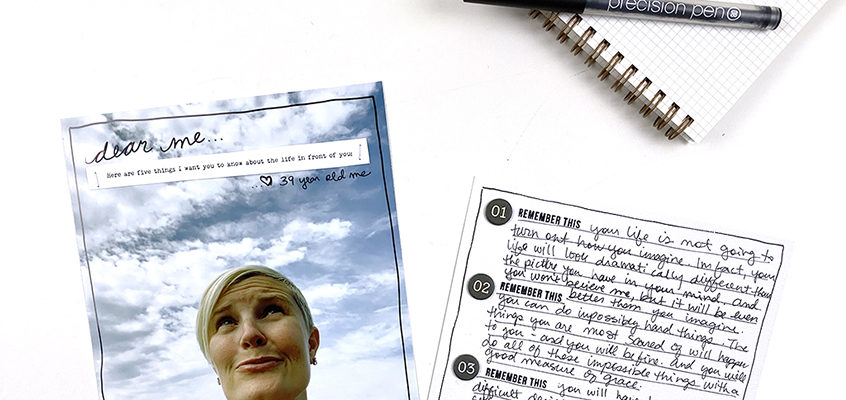 precision pen
dear me...
Here are five things I want you to know about the life in front of you
...♡ 39 year old me
01 REMEMBER THIS your life is not going to
turn out how you imagine. In fact, your
life will look dramatically different than
the picture you have in your mind. And
you won't believe me, but it will be even
02 REMEMBER THIS better than you imagine.
you can do impossibly hard things. The
things you are most scared of will happen
to you - and you will be fine. And you will
do all of those impossible things with a
good measure of grace.
03 REMEMBER THIS you will have
difficult